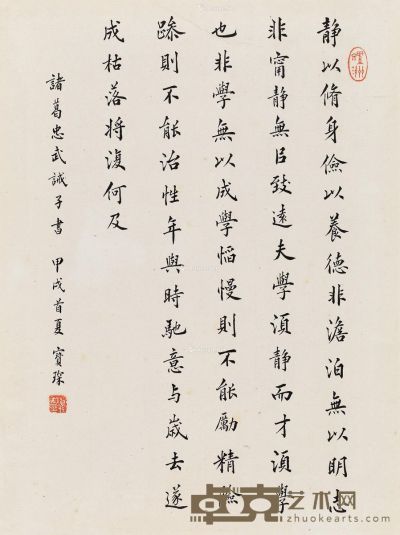 静以脩身儉以養德非澹泊無以明志
非甯静無㠯致遠夫學須静而才須學
也非學無以成學慆慢則不能勵精險
躁則不能治性年與時馳意与歲去遂
成枯落将復何及
諸葛忠武誡子書 甲戌首夏 寶琛
卓克艺术网
zhuokearts.com